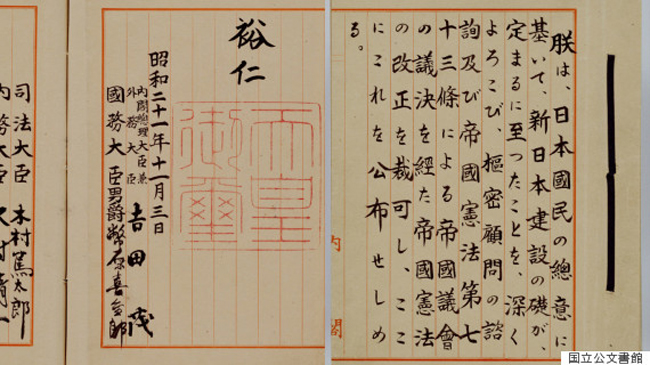 朕は、日本國民の總意に
基いて、新日本建設の礎が、
定まるに至つたことを、深く
よろこび、樞密顧問の諮
詢及び帝國憲法第七
十三條による帝國議會
の議決を經た帝國憲法
の改正を裁可し、ここ
にこれを公布せしめ
る。
内閣
裕仁
天皇御璽
昭和二十一年十一月三日
内閣總理大臣兼
外務大臣 吉田茂
國務大臣男爵幣原喜重郎
司法大臣 木村篤太郎
内務大臣
国立公文書館